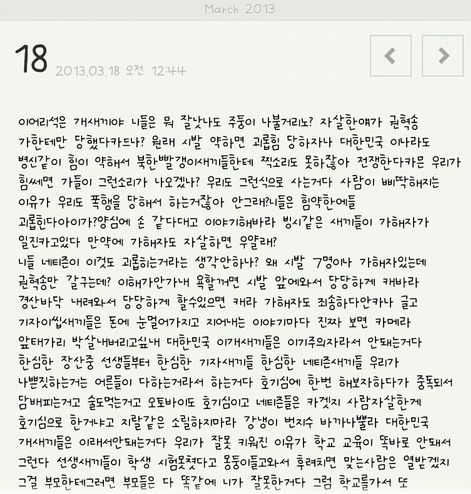 March 2013
18 2013.03.18 오전 12:44
이어리석은 개새끼야 니들은 뭐 잘낫나도 주둥이 나불거리노? 자살한얘가 권혁송
가한테만 당했다카드나? 원래 시발 약하면 괴롭힘 당하자나 대한민국 이나라도
병신같이 힘이 약해서 북한빨갱이새끼들한테 찍소리도 못하잖아 전쟁한다카믄 우리가
힘쎄면 가들이 그런소리가 나오겠나? 우리도 그런식으로 사는거다 사람이 삐딱해지는
이유가 우리도 폭행을 당해서 하는거잖아 안그래?니들은 힘약한에들
괴롭힌다아이가?양심에 손 같다대고 이야기해바라 빙시같은 새끼들이 가해자가
일진카고있다 만약에 가해자도 자살하면 우얄래?
니들 네티즌이 이것도 괴롭히는거라는 생각안하나? 왜 시발 7명이나 가해자있는데
권혁송만 갈구는데? 이해가안가내 욕할꺼면 시발 앞에와서 당당하게 캐바라
경산바닥 내려와서 당당하게 할수있으면 캐라 가해자도 죄송하다안카나 글고
기자이씹새끼들은 돈에 눈멀어가지고 지어내는 이야기마다 진짜 보면 카메라
앞태가리 박살내버리고싶내 대한민국 이개새끼들은 이기주의자라서 안돼는거다
한심한 장산중 선생들부터 한심한 기자새끼들 한심한 네티즌새끼들 우리가
나쁜짓하는거는 어른들이 다하는거라서 하는거다 호기심에 한번 해보자하다가 중독되서
담배피는거고 술도먹는거고 오토바이도 호기심이고 네티즌들은 카겟지 사람자살한게
호기심으로 한거냐고 지랄같은 소림하지마라 강냉이 번지수 바까나뿔라 대한민국
개새끼들은 이래서안돼는거다 우리가 잘못 키워진 이유가 학교 교육이 똑바로 안돼서
그런다 선생새끼들이 학생 시험못쳣다고 몽둥이들고와서 후려치면 맞는사람은 열받겠지
그걸 부모한테그러면 부모들은 다 똑같에 니가 잘못한거다 그럼 학교를가서 또